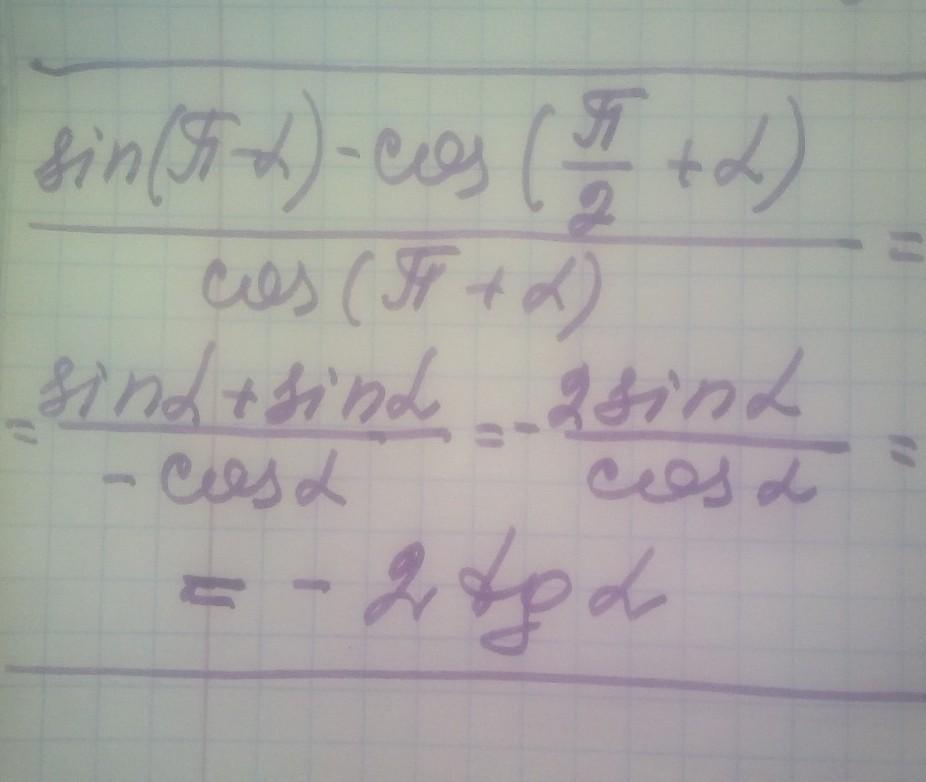 sin(π-α)-cos(π/2+α)/cos(π+α)=
=sinα+sinα/-cosα=-2sinα/cosα=
=-2tgα